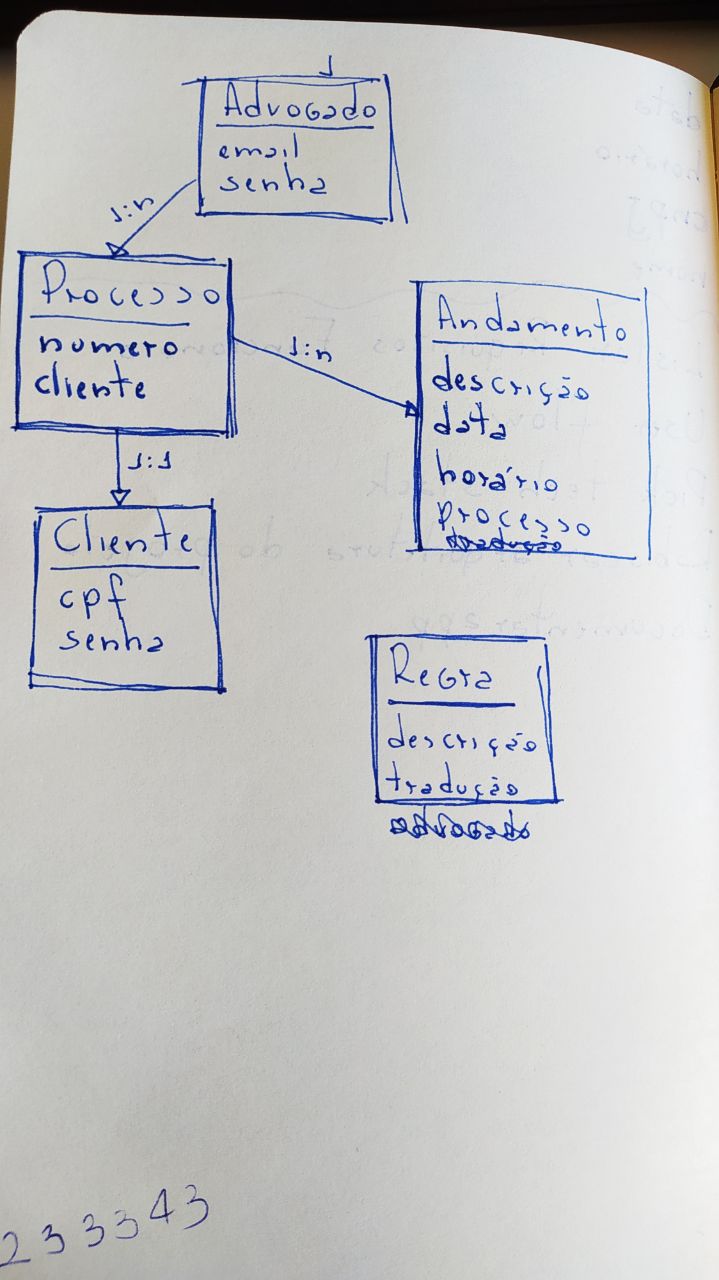 1
Advogado
email
senha
1:n
Processo
numero
cliente
1:n
Andamento
descrição
data
horário
processo
tradução
1:1
Cliente
cpf
senha
Regra
descrição
tradução
advogado
233343